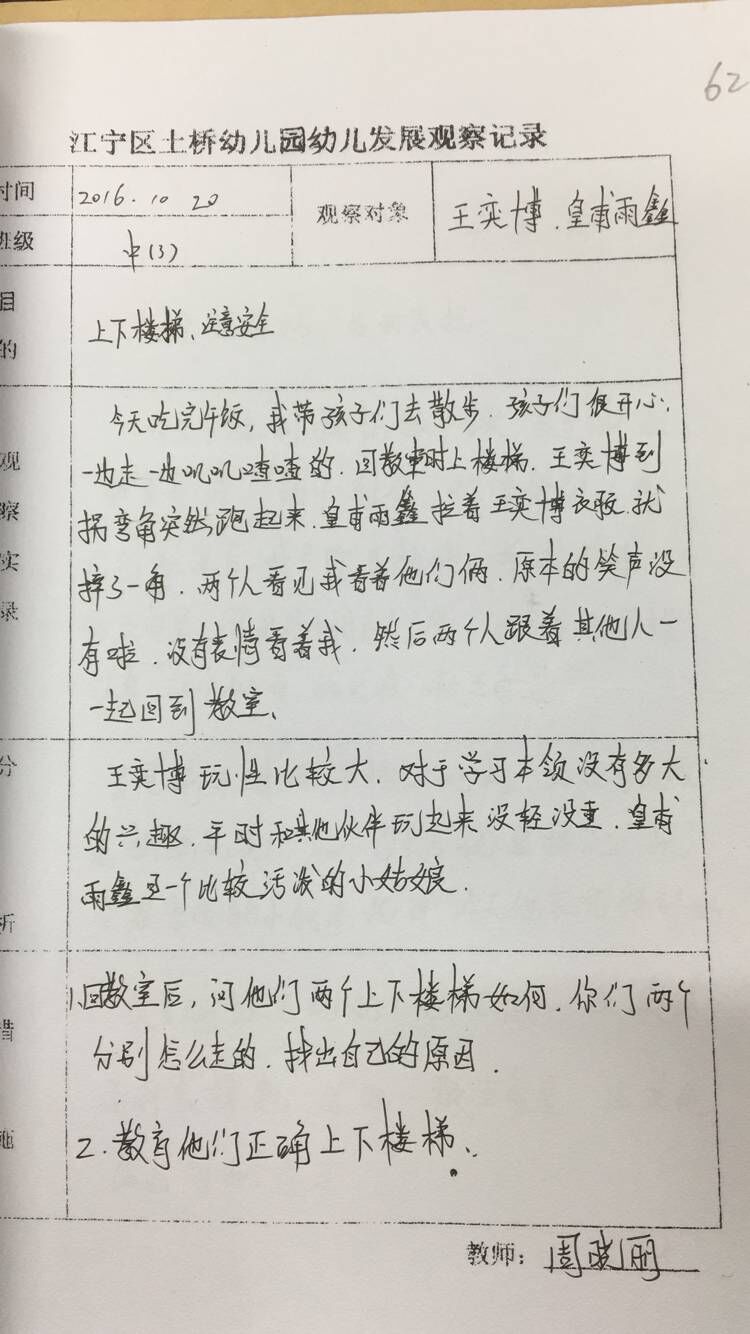 62
江宁区土桥幼儿园幼儿发展观察记录
时间 2016.10 20 观察对象 王奕博、皇甫雨鑫
班级 中(3)
目的
上下楼梯、注意安全
观察实录
今天吃完午饭，我带孩子们去散步．孩子们很开心．
一边走一边叽叽喳喳的．回教室时上楼梯．王奕博到
拐弯角突然跑起来．皇甫雨鑫拉着王奕博衣服．就
摔了一角．两个人看见我看着他们俩．原本的笑声没
有啦．没有表情看着我．然后两个人跟着其他人一
一起回到教室、
分析
王奕博玩性比较大．对于学习本领没有多大
的兴趣．平时和其他伙伴玩起来没轻没重．皇甫
雨鑫是一个比较活泼的小姑娘．
措施
1.回教室后，问他们两个上下楼梯如何．你们两个
分别怎么走的．找出自己的原因．
2．教育他们正确上下楼梯、
教师：周晓丽